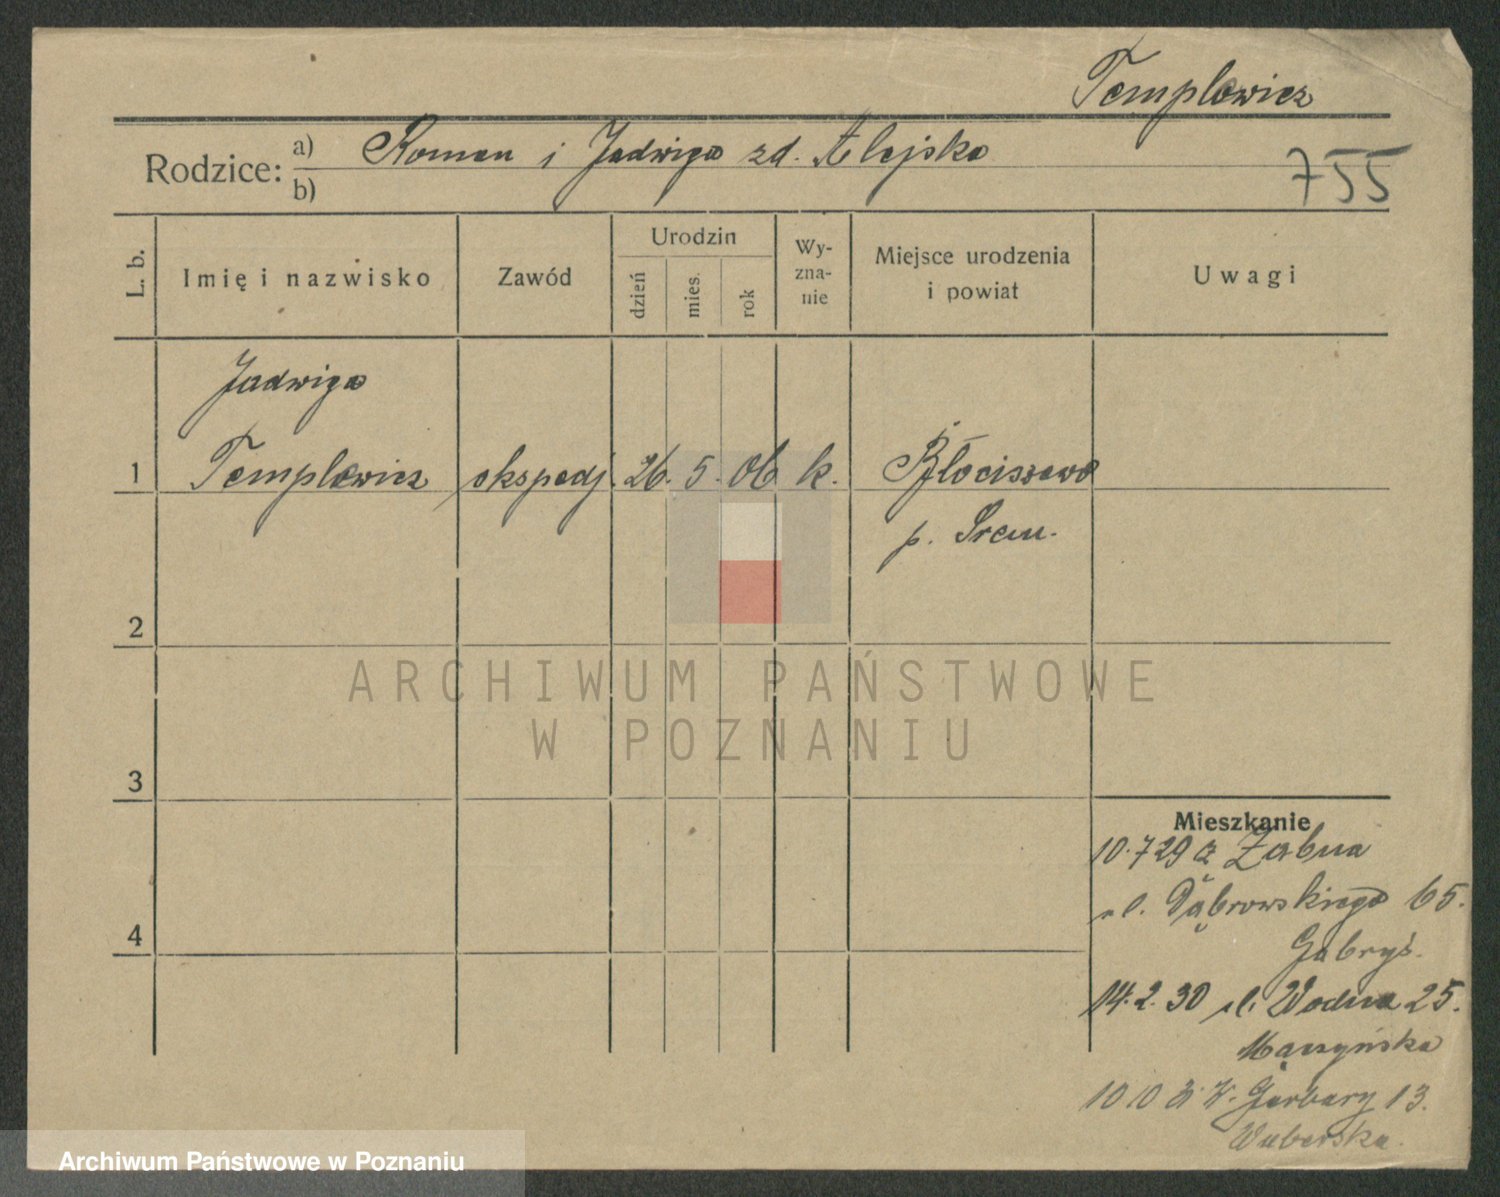 Templowicz
Rodzice: a) Roman i Jadwiga zd. Alejska
b)
755
L. b.
Imię i nazwisko
Zawód
Urodzin
dzień
mies.
rok
Wy-
zna-
nie
Miejsce urodzenia
i powiat
Uwagi
Jadwiga
1 Templowicz ekspedj. 26. 5. 06 k. Błociszewo
p. Śrem.
2
3
4
Mieszkanie
10.7 29 z Żabna
ul. Dąbrowskiego 65.
Gabryś.
14.2.30 ul. Wodna 25.
10 10 Garbary 13.
ARCHIWUM PAŃSTWOWE
W POZNANIU
Archiwum Państwowe w Poznaniu